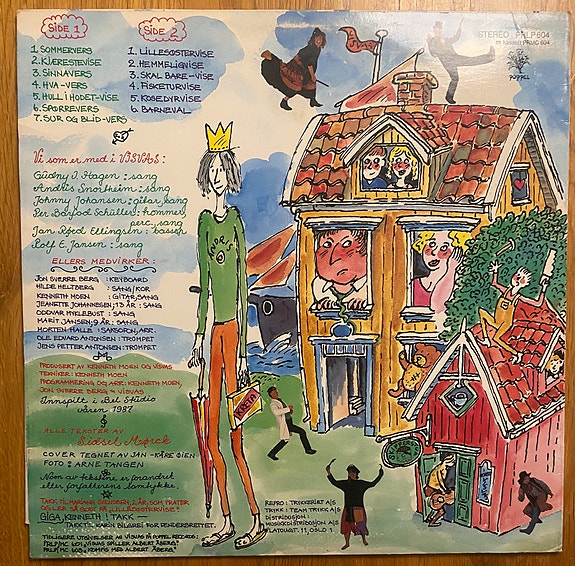 SIDE 1
1. SOMMERVERS
2. KJÆRESTEVISE
3. SINNAVERS
4. HVA-VERS
5. HULL I HODET-VISE
6. SPØRREVERS
7. SUR OG BLID-VERS
SIDE 2
1. LILLESØSTERVISE
2. HEMMELIGVISE
3. SKAL BARE-VISE
4. FISKETURVISE
5. KOSEDYRVISE
6. BARNEVAL
STEREO PRLP 604
m kassett PRMC 604
POPPEL
VISVAS
Vi som er med i VISVAS:
Gudny I. Hagen: sang
Andris Snortheim: sang
Johnny Johansen: gitar, sang
Per Barfod Schüller: trommer,
perc. sang
Jan Roed Ellingsen: basser
Rolf E. Jansen: sang
ELLERS MEDVIRKER:
JON SVERRE BERG: KEYBOARD
HILDE HELTBERG: SANG/KOR
KENNETH MOEN: GITAR, SANG
JEANETTE JOHANNESEN, 13 ÅR: SANG
ODDVAR MYKLEBUST: SANG
MARIT JANSEN, 9 ÅR: SANG
MORTEN HALLE: SAKSOFON, ARR.
OLE EDVARD ANTONSEN: TROMPET
JENS PETTER ANTONSEN: TROMPET
PRODUSERT AV KENNETH MOEN OG VISVAS
TEKNIKER: KENNETH MOEN
PROGRAMMERING OG ARR: KENNETH MOEN,
JON SVERRE BERG & VISVAS
Innspilt i Bel Studio
våren 1987
ALLE TEKSTER AV
Sidsel Mørck
COVER TEGNET AV JAN-KÅRE ØIEN
FOTO: ARNE TANGEN
Noen av tekstene er forandret
etter forfatterens samtykke.
TAKK TIL MARIANN SVENDSEN, 2 ÅR, SOM PRATER
OG LER SÅ GODT PÅ "LILLESØSTERVISE"!
GIGA, KENNETH! TAKK
TAKK TIL KARIN BILGREI FOR PENDERBRETTET.
TIDLIGERE UTGIVELSER AV VISVAS PÅ POPPEL RECORDS:
PRLP/MC 601 "VISVAS SPILLER ALBERT ÅBERG"
PRLP/MC 603 "KOMPIS MED ALBERT ÅBERG"
KARTA
REPRO: TRYKKERIET A/S
TRYKK: TEAM TRYKK A/S
DISTRIBUSJON:
MUSIKKDISTRIBUSJON A/S
PLATOUGT. 11, OSLO 1